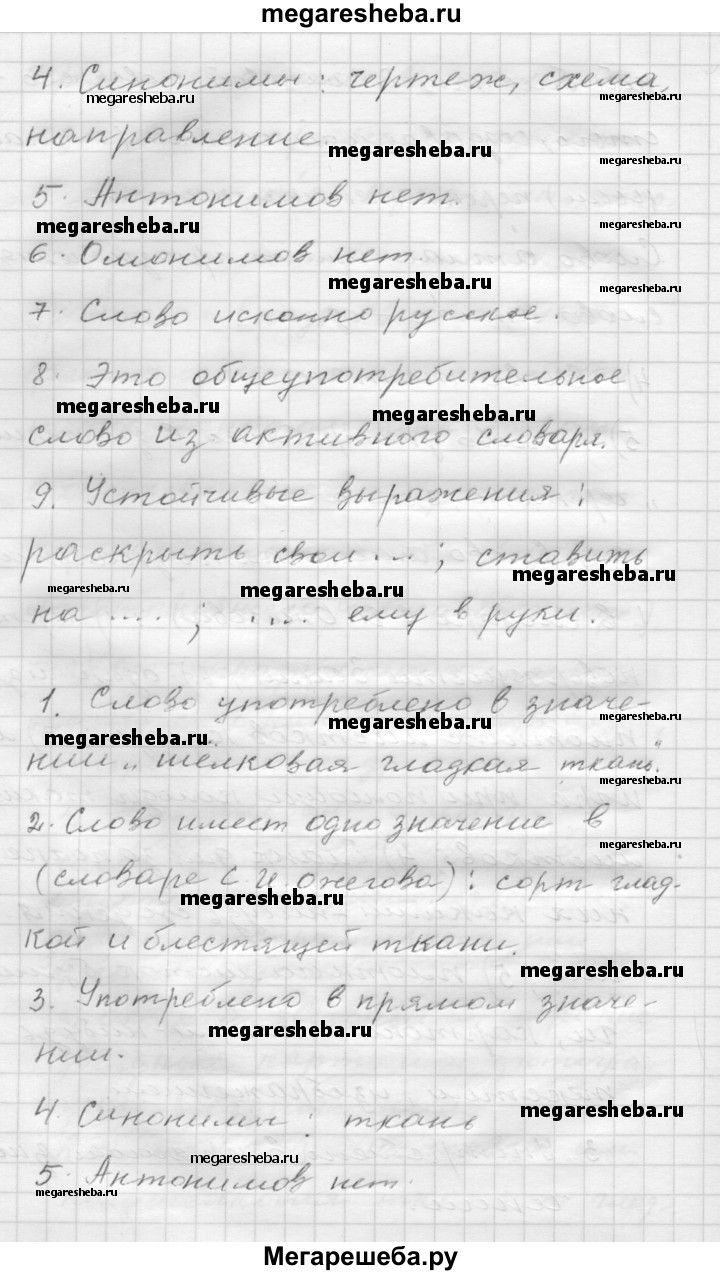 megaresheba.ru
4. Синонимы: чертеж, схема,
megaresheba.ru megaresheba.ru
направление.
megaresheba.ru megaresheba.ru
5. Антонимов нет.
megaresheba.ru megaresheba.ru
6. Омонимов нет.
megaresheba.ru megaresheba.ru
7. Слово исконно русское.
megaresheba.ru
8. Это общеупотребительное
megaresheba.ru megaresheba.ru
слово из активного словаря.
megaresheba.ru megaresheba.ru
9. Устойчивые выражения:
раскрыть свои ...; ставить
megaresheba.ru megaresheba.ru megaresheba.ru
на ....; .... ему в руки.
1. Слово употреблено в значе-
megaresheba.ru megaresheba.ru megaresheba.ru
нии „шелковая гладкая ткань".
megaresheba.ru
2. Слово имеет одно значение в
megaresheba.ru
(словаре С. И. Ожегова): сорт глад-
megaresheba.ru megaresheba.ru
кой и блестящей ткани.
megaresheba.ru
3. Употреблено в прямом значе-
megaresheba.ru
нии.
4. Синонимы: ткань
megaresheba.ru
megaresheba.ru
5. Антонимов нет.
megaresheba.ru
Мегарешеба.ру